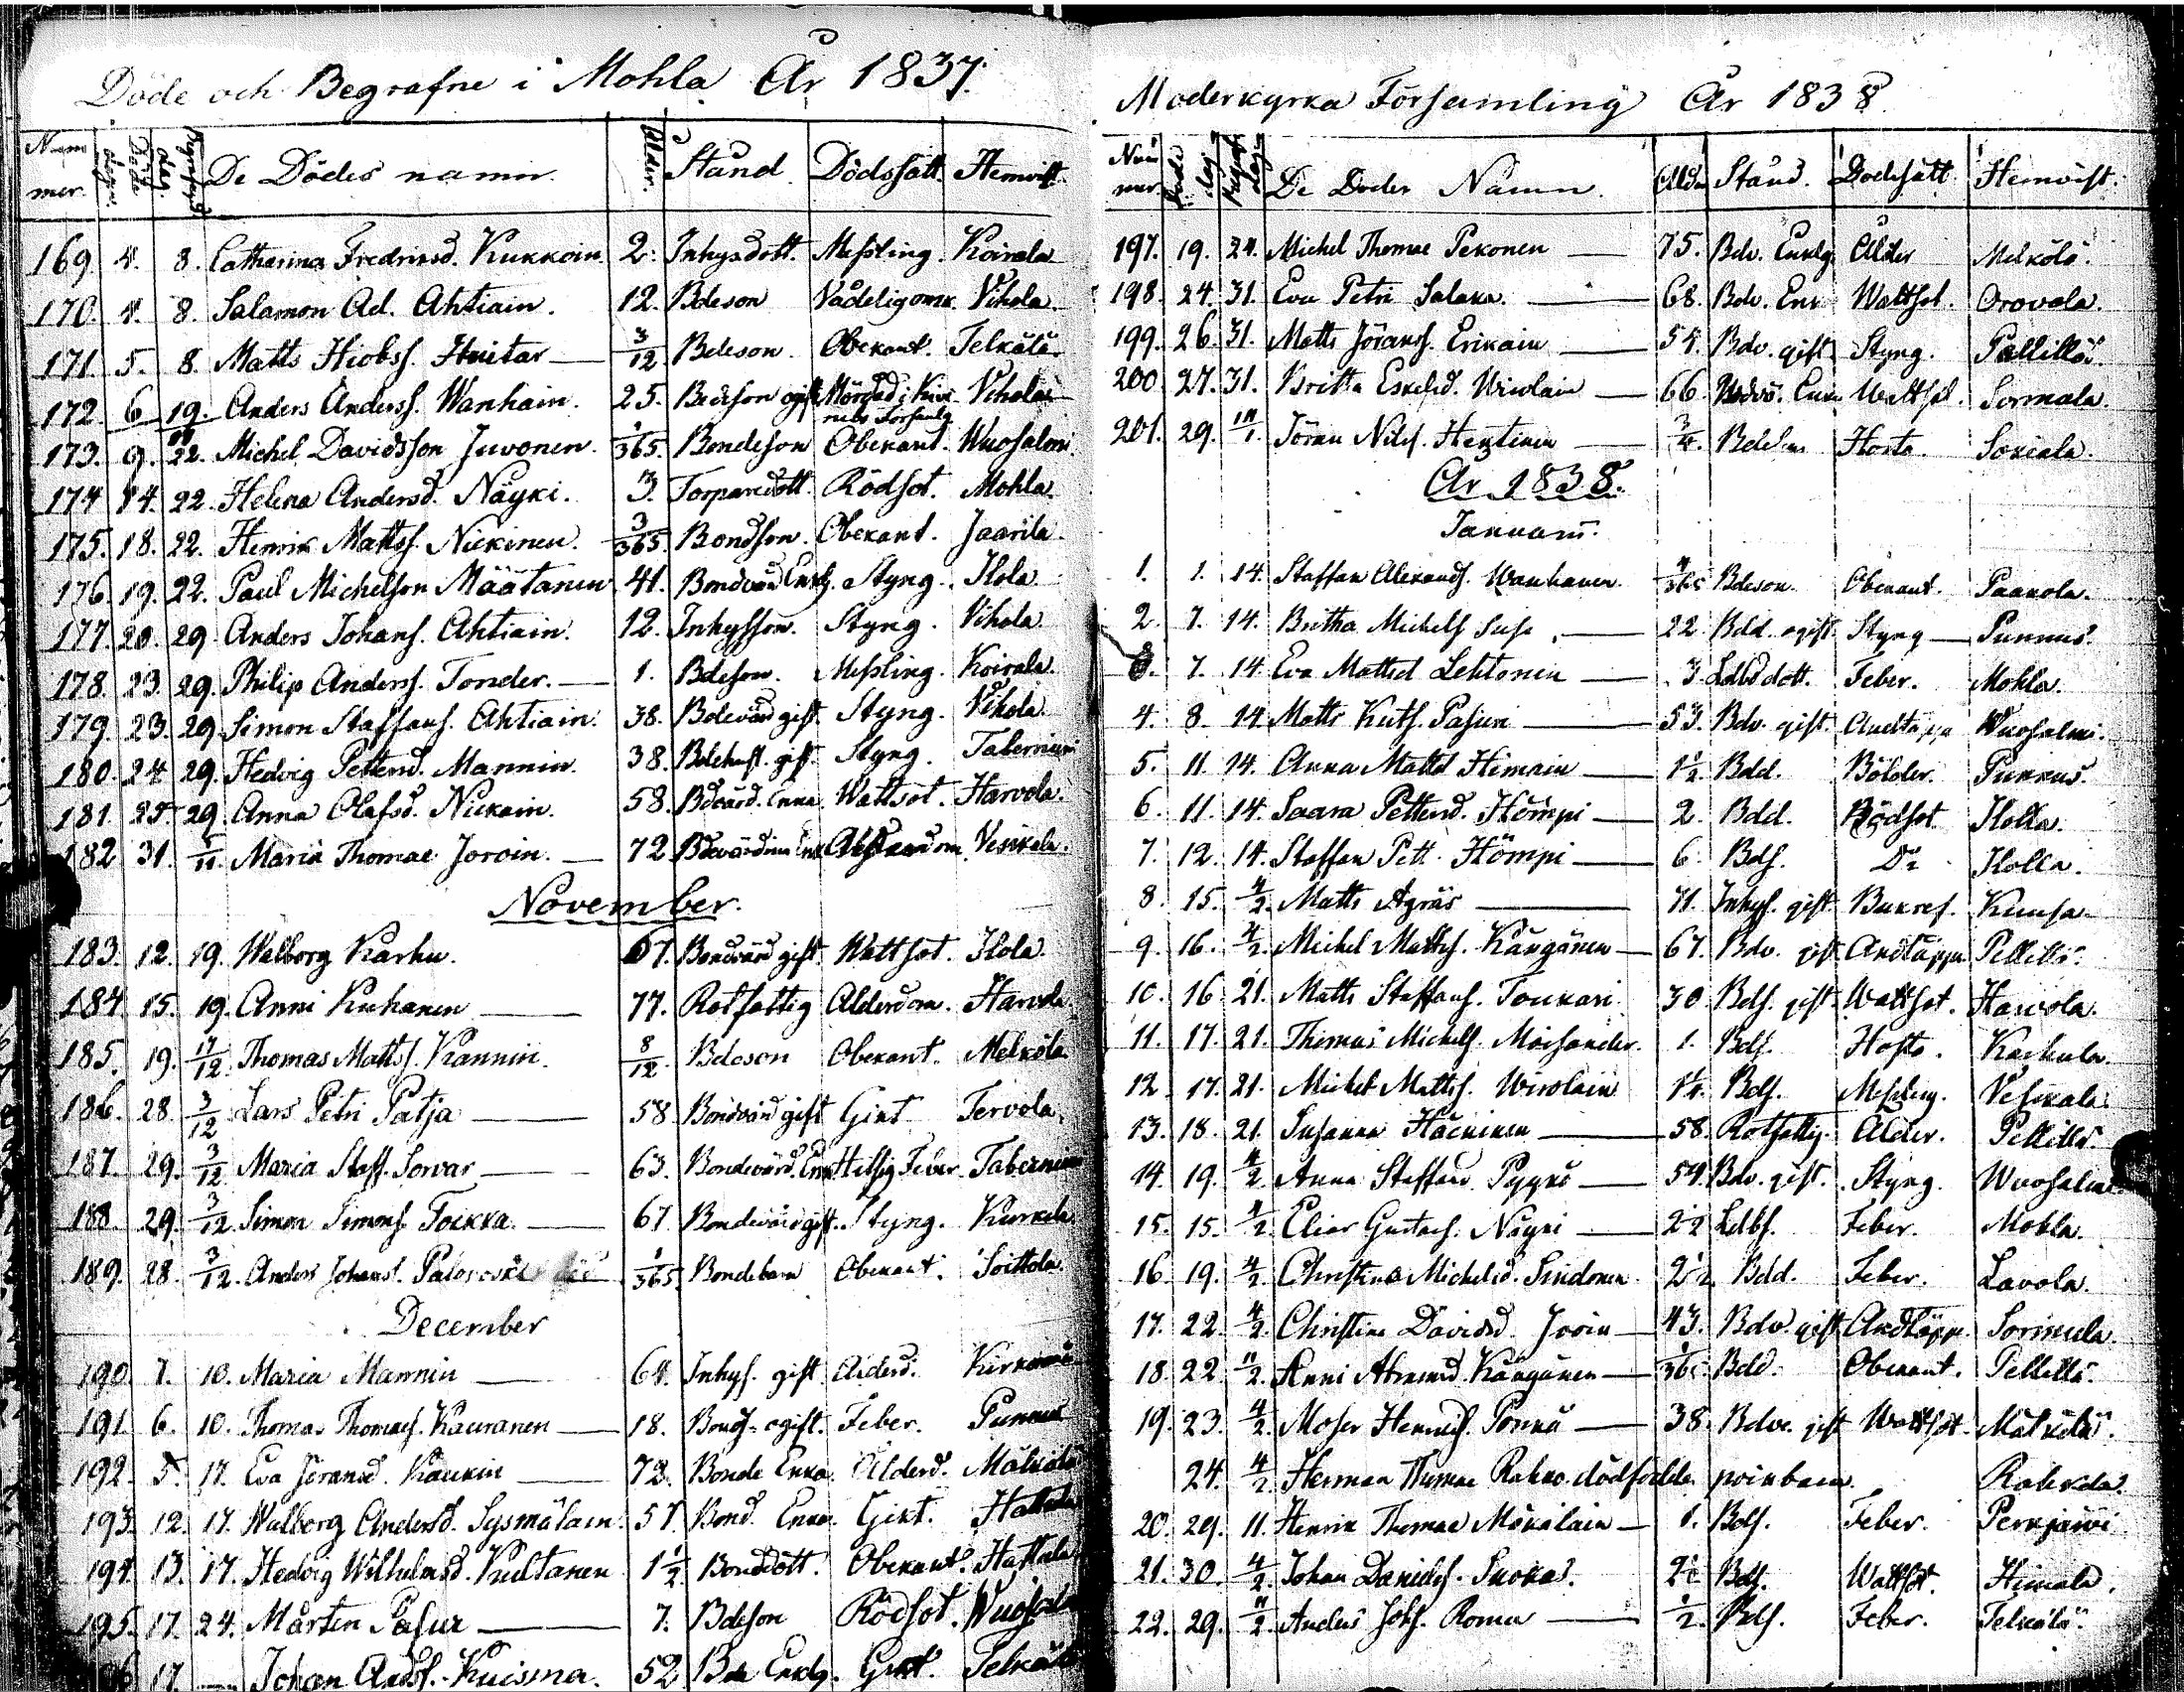 Döde och Begrafne i Mohla År 1837.
Nummer. Döde dagen Begrafg dag. De Dödes namn. Ålder. Stånd. Dödssätt. Hemvist.
169. 4. 8. Catharina Fredriksd. Kukkoin. 2. Inhysdott. Messling. Koirala
170. 4. 8. Salamon Ad. Ahtiain. 12. Bdeson Vådelig Vihola.
171. 5. 8. Matts Hiobss. Huitar 3/12 Bdeson. Obekant. Telkälä.
172. 6 19. Anders Anderss. Wanhain. 25. Bdeson ogift Mördad i Vihola
173. 9. 22. Michel Davidsson Juvonen. 1/365. Bondeson Obekant. Wuosalmi
174 14. 22. Helena Andersd. Näyki. 3. Torparedott. Rödsot. Mohla.
175. 18. 22. Henrik Mattss. Nickinen. 3/365. Bondson. Obekant. Jaarila.
176. 19. 22. Paul Michelson Määtanen 41. Bondvärd Enklg. Styng. Ilola
177. 20. 29. Anders Johans. Ahtiain. 12. Inhysson. Styng. Vihola.
178. 23. 29. Philip Anderss. Tonder. 1. Bdeson. Messling. Koirala.
179. 23. 29. Simon Staffans. Ahtiain. 38. Bdevärd gift. Styng. Vihola.
180. 24 29. Hedvig Pettersd. Mannin. 38. Bdehust. gift. Styng. Taberniemi
181. 25. 29. Anna Olafsd. Nickain. 58. Bdvärd. Enka. Wattsot. Harvola.
182 31. 5/11. Maria Thomae Joroin. 72. Bdevärdina Enk Ålderdom Vesikala.
November.
183. 12. 19. Walborg Karhu. 67. Bondvärd gift. Wattsot. Ilola.
184 15. 19. Anni Kuhanen 77. Rotfattig Ålderdom. Harvola
185. 19. 17/12. Thomas Mattss. Kannin. 8/12 Bdeson Obekant. Melkölä
186. 28. 3/12 Lars Petri Patja 58 Bondvärd gift Gikt Tervola.
187. 29. 3/12 Maria Staff. Sorvar 63. Bondevärd. Enk Hitsig Feber. Taberniemi
188. 29. 3/12. Simon Simons Toikka. 67. Bondevärd gift. Styng. Kurkela
189. 28. 3/12. Anders Johans. 1/365 Bondebarn Obekant. Soittola.
December
190. 7. 10. Maria Mannin 64. Inhys. gift. Ålderd.
191. 6. 10. Thomas Thomass. Kauranen 18. Bonds. ogift. Feber. Punnus
192. 5. 17. Eva Jöransd. Kaukin 72. Bonde Enka. Ålderd. Mälkölä
193. 12. 17. Walborg Andersd. Sysmäläin 57. Bond. Enka. Gikt. Hattula
194. 13. 17. Hedvig Wilhelmsd. Kultanen 1 1/2 Bonddott. Obekant. Hattula
195. 17. 24. Mårten Pasur 7. Bdeson Rödsot. Wuosalmi
196 17. Johan Andss. Kuisma. 52 Bde Enklg. Gikt. Telkälä
Moderkyrka Församling År 1838
Nummer. Döds dag Begrafs dag De Dödes Namn. Åldr Stånd. Dödssätt Hemvist.
197. 19. 24. Michel Thomae Pekonen 75. Bdv. Enklg Ålder Melkölä.
198. 24. 31. Eva Petri Salaka. 68. Bdv. Enk Wattsot. Orovala.
199. 26. 31. Matts Jöranss. Erikain 54. Bdv. gift Styng. Pällilä.
200. 27. 31. Britta Eskelsd. Wirolain 66. Bdvs. Enk Wattsot. Sormula.
201. 29. 1. Jöran Nilss. Henttinen 3/4. Bdeson Hosta. Sokiala.
År 1838.
Januarii.
1. 1. 14. Staffan Alexands. Wanhanen. 4/365 Bdeson. Obekant. Paakola.
2. 7. 14. Britha Michels Susi 22 Bdd. ogift. Styng Punnus.
3. 7. 14. Eva Mattsd Lehtonen 3 Ldbd dott. Feber. Mohla.
4. 8. 14. Matts Pasuri 53. Bdv. gift. Andtäppa Wuosalmi.
5. 11. 14. Anna Mattsd Himain 1 1/2 Bdd. Bölder. Punnus.
6. 11 14. Saara Pettersd. Hömpi 2. Bdd. Rödsot Ilola.
7. 12. 14. Staffan Pett. Hömpi 6. Bds. Do Ilola.
8. 15. 4/2. Matts Ägräs 71. Inhys. gift. Bukref. Kuusa
9. 16. 4/2. Michel Mattss. Kängänen 67. Bdv. gift Andtäppa Pellilä.
10. 16 21. Matts Staffans. Toukari 30. Bds. gift Wattsot. Harvola.
11. 17. 21. Thomas Michels. Moisander. 1. Bds. Hosta. Karhula
12 17. 21. Michel Mattss. Wirolain 1 1/4. Bds. Messling. Vesikala.
13. 18. 21. Susanna Häckinen 58. Rotfattig. Ålder. Pellilä.
14. 19. 4/2. Anna Staffansd. Pyykö 54. Bdv. gift. Styng. Wuosalmi
15. 15. 4/2. Elias Gustafs. Näyki 2 1/2 Ldbs. Feber. Mohla.
16. 19. 4/2. Christina Michelsd. Sindonen. 2 1/2 Bdd. Feber. Lavola.
17. 22. 4/2. Christina Davidsd. Join 43. Bdv. gift Andtäppa. Sormula.
18. 22. 11/2. Anni Abramsd. Kängänen 1/365 Bdd. Obekant. Pellilä.
19. 23. 4/2. Moses Henrics. Ponnä 38. Bdv. gift Wattsot. Mälkölä.
24. 4/2. Herman Thomae Rahko dödfödde poikbarn. Rahkola.
20. 29. 11. Henrik Thomae Mökäläin 1. Bds. Feber. Perkjärvi
21. 30. 4/2. Johan Daniels. Suokas. 2 1/2 Bds. Wattsot. Himala.
22. 29. 11/2. Anders Johs. Roma 1/2. Bds. Feber. Telkälä.